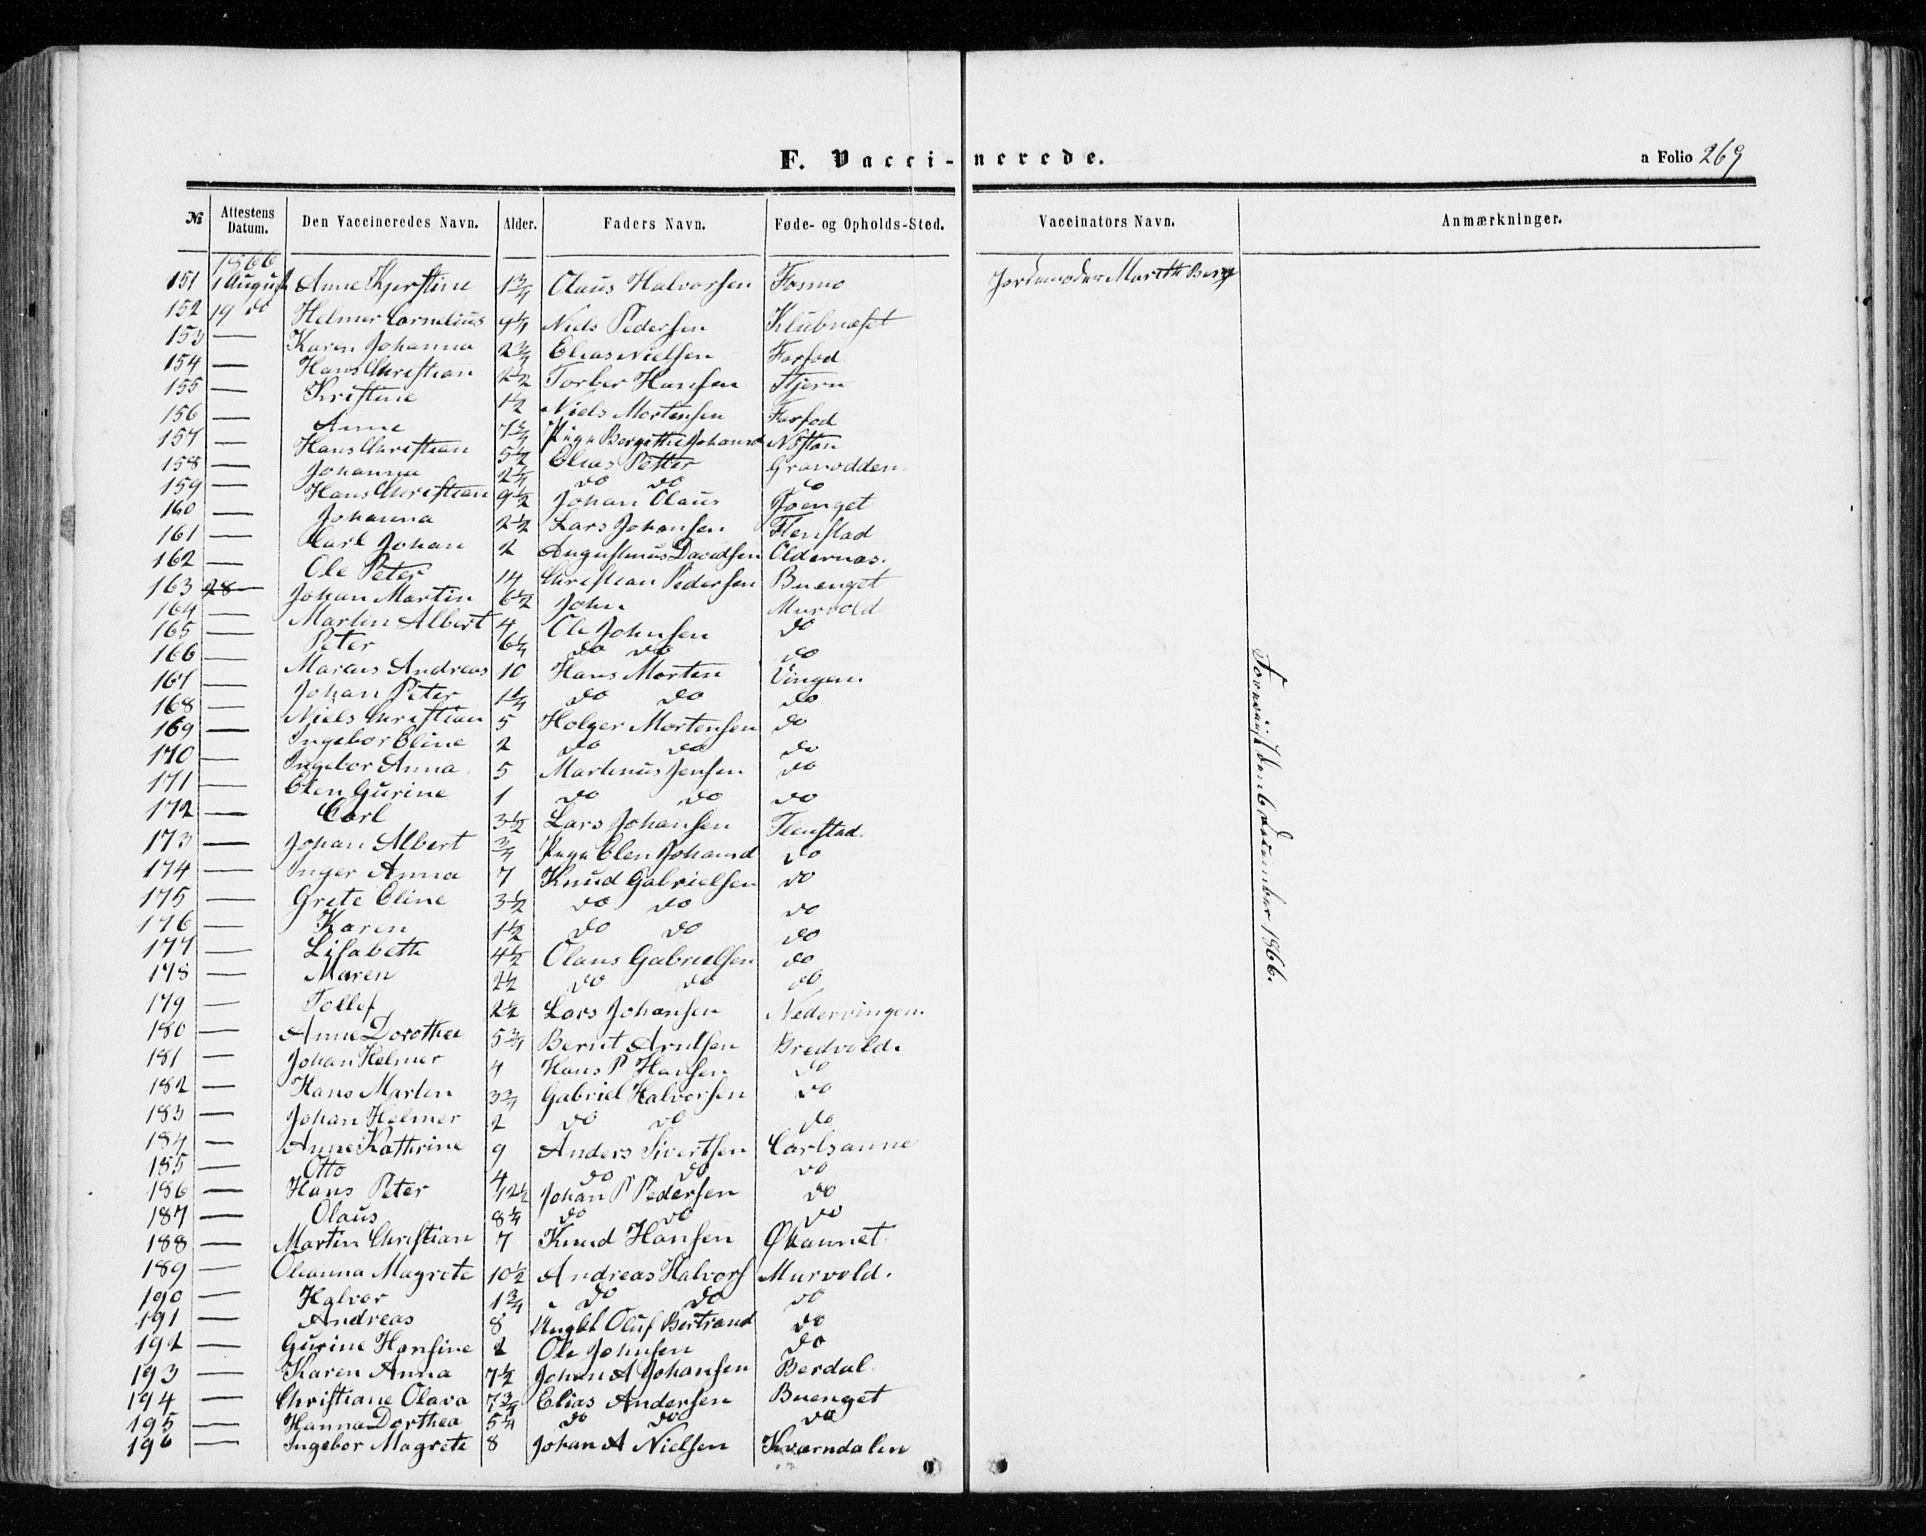 F. Vacci-nerede.
a Folio 269
№ Attestens Datum. Den Vaccineredes Navn. Alder. Faders Navn. Føde- og Opholds-Sted. Vaccinators Navn. Anmærkninger.
1866
151 1 August Anne Kjerstine 1 3/4 Olaus Halvorsen Fosmo Jordemoder Marith Berg
152 19 do Helmer Cornelius 4 1/4 Niels Pedersen Klubnæset
153 — Karen Johanna 2 3/4 Elias Nielsen Farfod
154 — Hans Christian 2 1/2 Torber Hansen Stjern
155 — Kristine 1 1/2 Niels Mortensen Farfod
156 — Anne 7 3/4 Pige Bergithe Johansd Nøstan
157 — Hans Christian 5 1/2 Elias Petter Granodden
158 — Johanna 2 1/4 do do do
159 — Hans Christian 9 1/2 Johan Olaus Røenget
160 — Johanna 2 1/2 Lars Johansen Flenstad
161 — Carl Johan 2 Augustinus Davidsen Oldernæs.
162 — Ole Peter 14 Christian Pedersen Buenget
163 28 — Johan Martin 6 1/2 John Murvold
164 — Martin Albert 4 Ole Johnsen do
165 — Peter 6 1/4 do do do
166 — Marcus Andreas 10 Hans Morten Vingen.
167 — Johan Peter 1 1/4 do do do
168 — Niels Christian 5 Holger Mortensen do
169 — Ingebor Eline 2 do do do
170 — Ingebor Anna 5 Martinus Jensen do
171 — Elen Gurine 1 do do do
172 — Carl 3 1/2 Lars Johansen Flenstad.
173 — Johan Albert 3/4 Pige Elen Johansd do
174 — Inger Anna 7 Knud Gabrielsen do
175 — Grete Eline 3 1/2 do do do
176 — Karen 1 1/2 do do do
177 — Lisabeth 4 1/2 Olaus Gabrielsen do
178 — Maren 2 1/2 do do do
179 — Tollef 2 1/2 Lars Johansen Nedervingen.
180 — Anne Dorothea 5 3/4 Bernt Arntsen Bredvold.
181 — Johan Helmer 4 Hans P Hansen do
182 — Hans Martin 3 3/4 Gabriel Halvorsen do
183 — Johan Helmer 2 do do do
184 — Anne Kathrine 9 Anders Sivertsen Carlsaune
185 — Otto 4 do do do
186 — Hans Peter 12 1/2 Johan P Pedersen do
187 — Olaus 8 1/4 do do do
188 — Martin Christian 7 Knud Hansen
189 — Oleanna Magrete 10 1/2 Andreas Halvors Murvold.
190 — Halvor 1 3/4 do do do
191 — Andreas 8 Ungkl Oluf Bertrand do
192 — Gurine Hansine 2 Ole Johnsen do
193 — Karen Anna 7 1/2 Johan A Johansen Berdal
194 — Christiane Olava 7 3/4 Elias Andersen Buenget
195 — Hanna Dorthea 5 1/4 do do do
196 — Ingebor Magrete 8 Johan A Nielsen Kværndalen
Forevist den 6 december 1866.